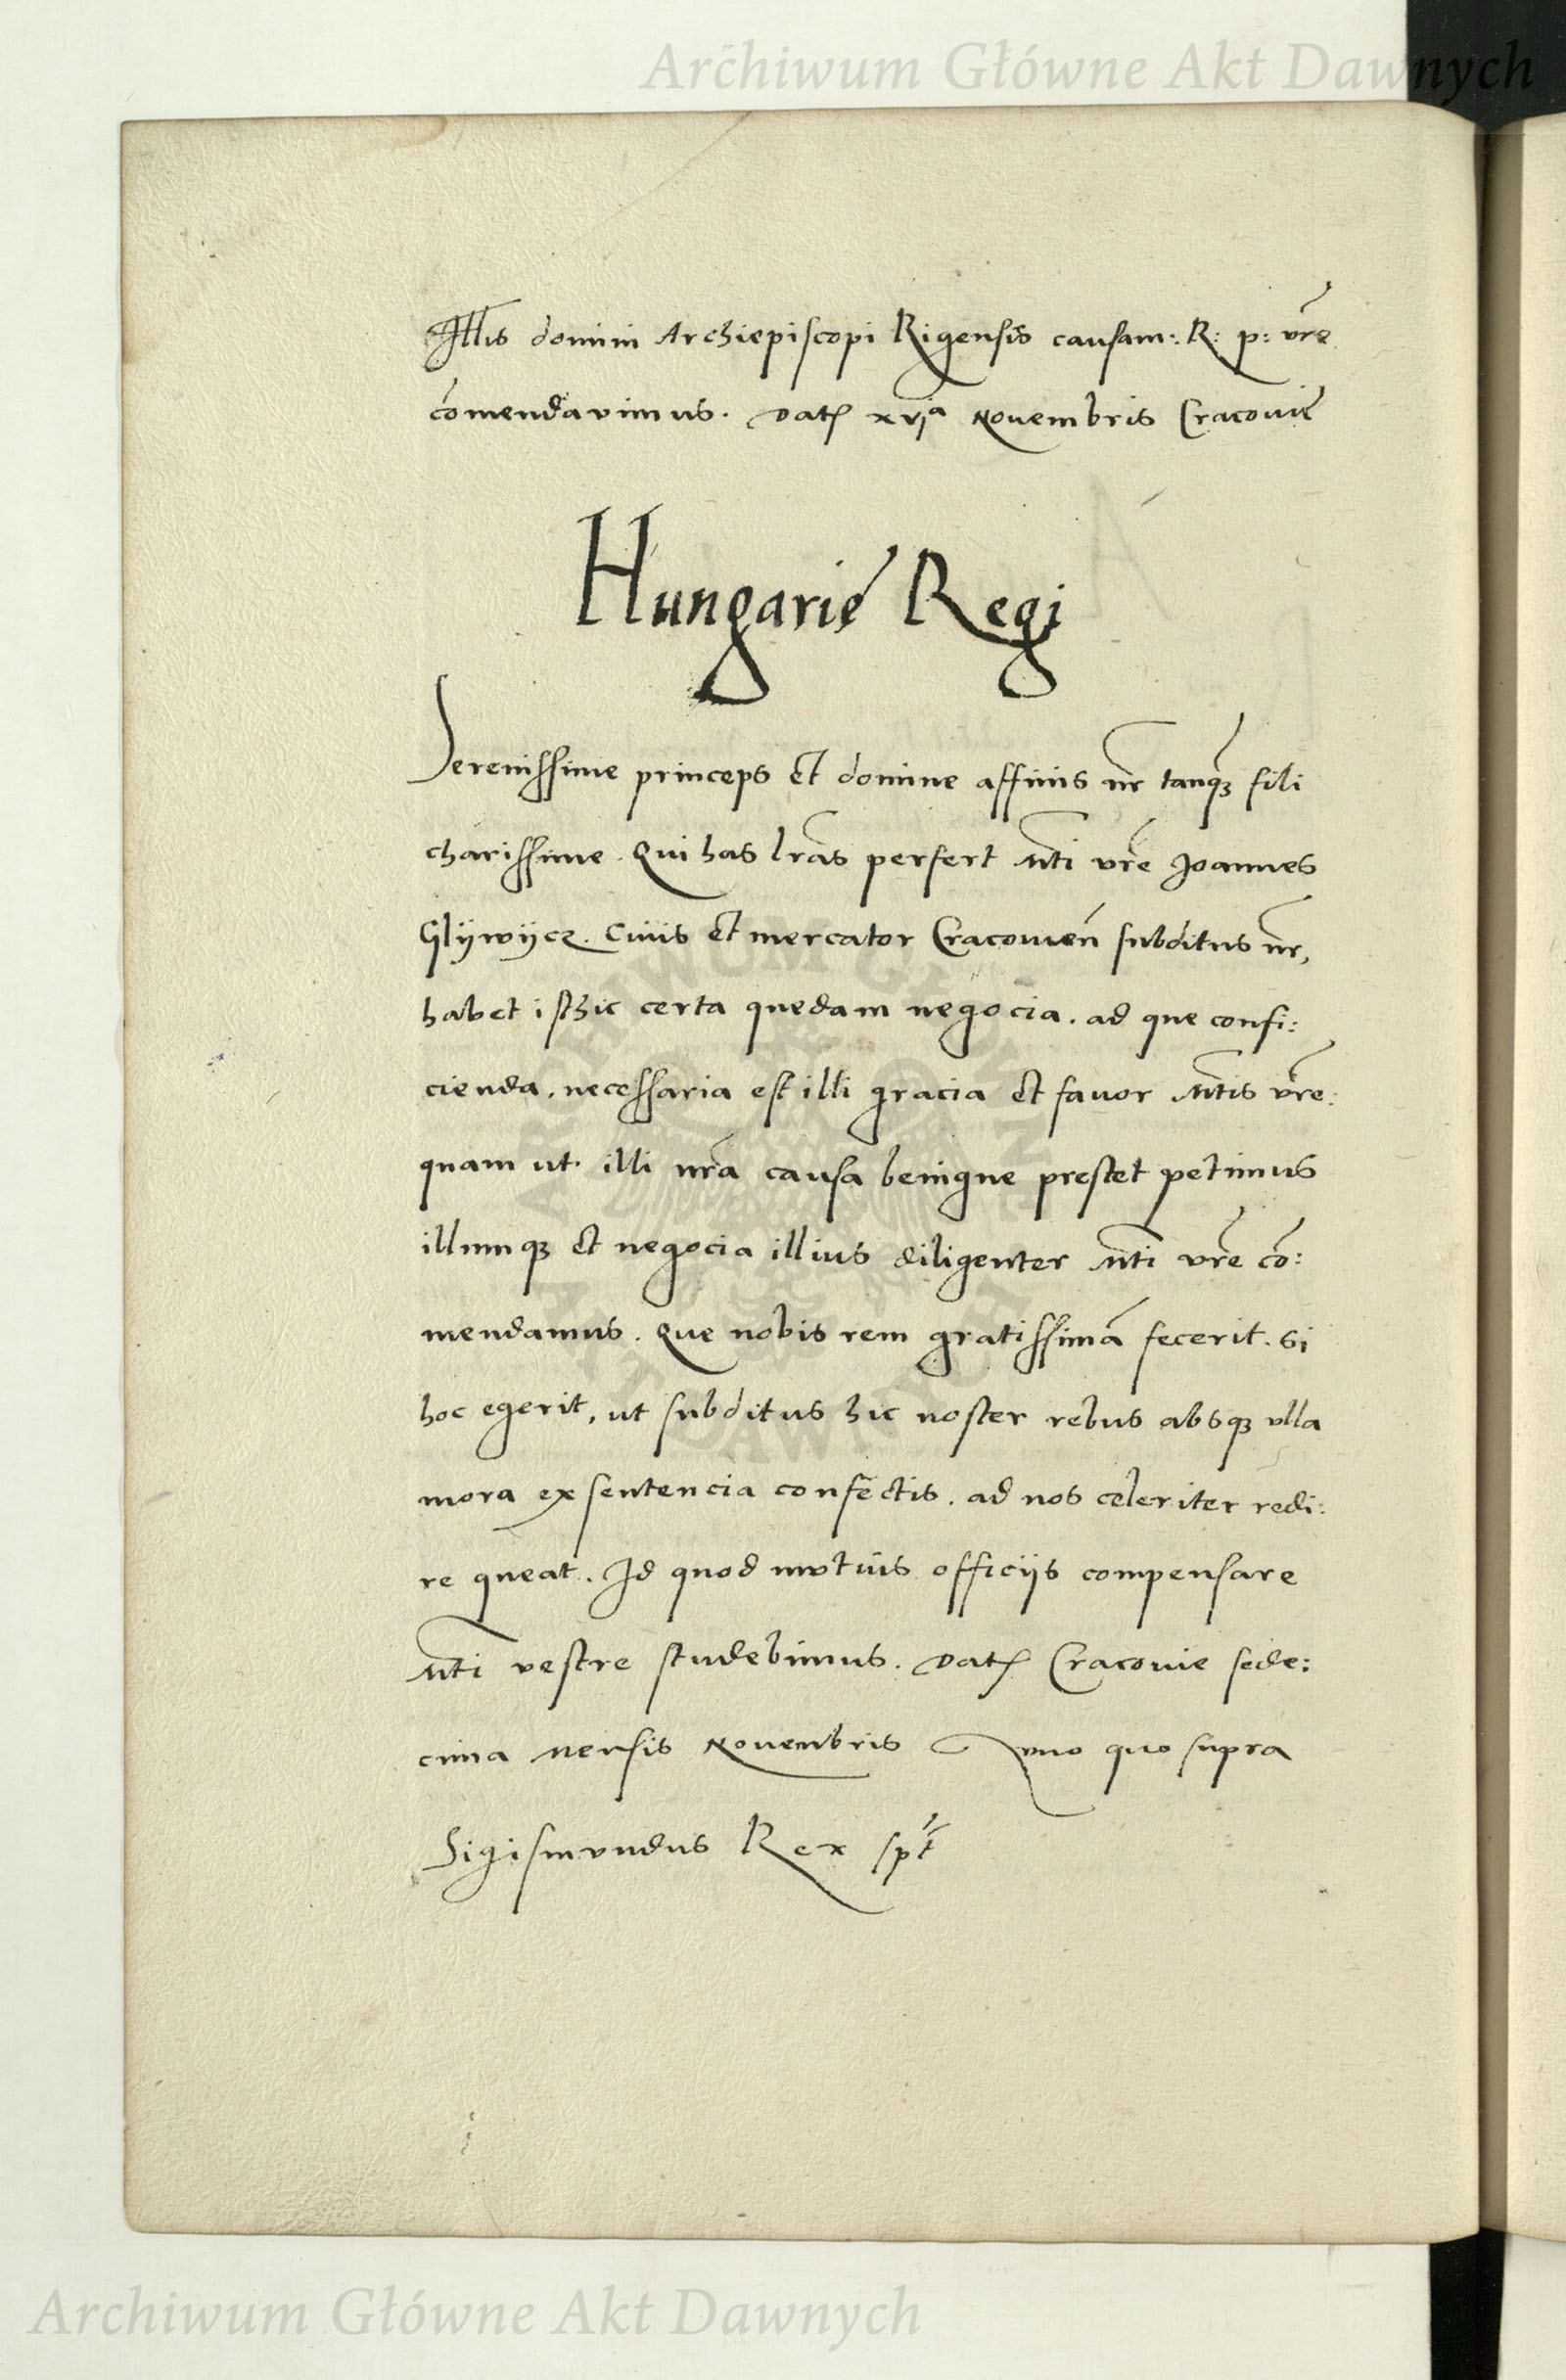 Archiwum Główne Akt Dawnych
Illis domini Archiepiscopi Rigensis causam: R: p: vr̃e
cõmendavimus. Datꝭ xvjᵃ Novembris Cracovie
Hungarie Regi
Serenissime princeps et domine affinis nr̃ tanqꝫ fili
charissime. Qui has lr̃as perfert M̃ti vr̃e Joannes
Glÿwÿcz. Civis et mercator Cracovieñ subditus nr̃,
habet isthic certa quedam negocia. ad que confi:
cienda, necessaria est illi gracia et favor M̃tis vr̃e:
quam ut illi nr̃a causa benigne prestet petimus
illumqꝫ et negocia illius diligenter M̃ti vr̃e cõ:
mendamus. Que nobis rem gratissimã fecerit. si
hoc egerit, ut subditus hic noster rebus absqꝫ vlla
mora ex sentencia confectis. ad nos celeriter redi:
re queat. Id quod mvtuis officijs compensare
M̃ti vestre studebimus. Datꝭ Cracovie sede:
cima Mensis Novembris Anno quo supra
Sigismvndus Rex sp̃t
Archiwum Główne Akt Dawnych